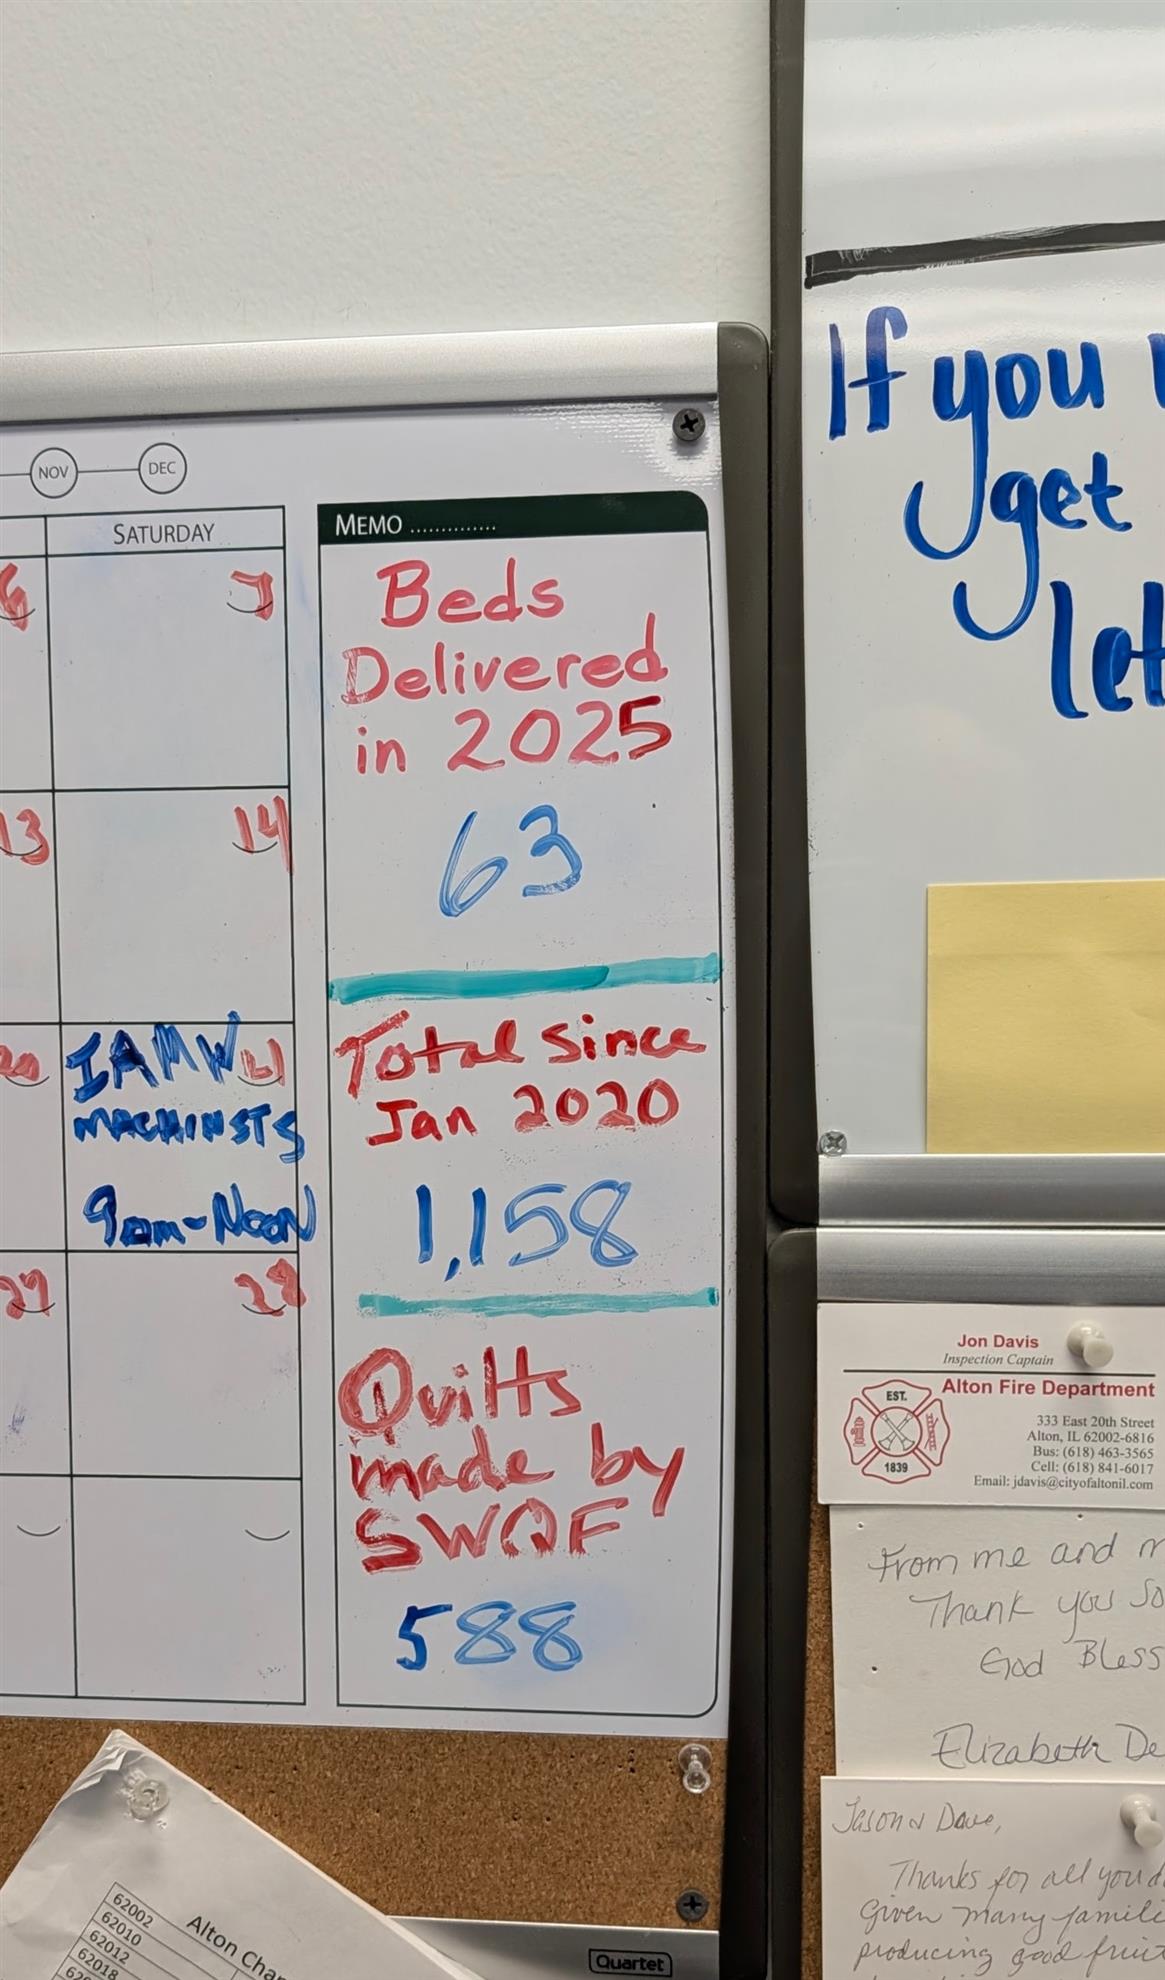 NOV DEC
SATURDAY
6 7
13 14
20 21
IAMW
MACHINSTS
9am-Noon
27 28
MEMO .............
Beds
Delivered
in 2025
63
Total since
Jan 2020
1,158
Quilts
made by
SWQF
588
If you
get
let
Jon Davis
Inspection Captain
Alton Fire Department
EST.
1839
333 East 20th Street
Alton, IL 62002-6816
Bus: (618) 463-3565
Cell: (618) 841-6017
Email: jdavis@cityofaltonil.com
From me and
Thank you So
God Bless
Elizabeth De
Jason & Dave,
Thanks for all you
Given many famili
producing good fruit
62002
62010
62012
62018
Alton Cha
Quartet